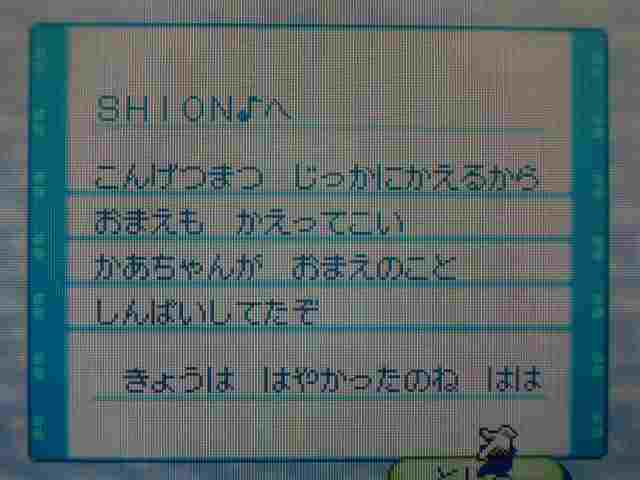 SHION♪へ
こんげつまつ　じっかにかえるから
おまえも　かえってこい
かあちゃんが　おまえのこと
しんぱいしてたぞ
きょうは　はやかったのね　はは